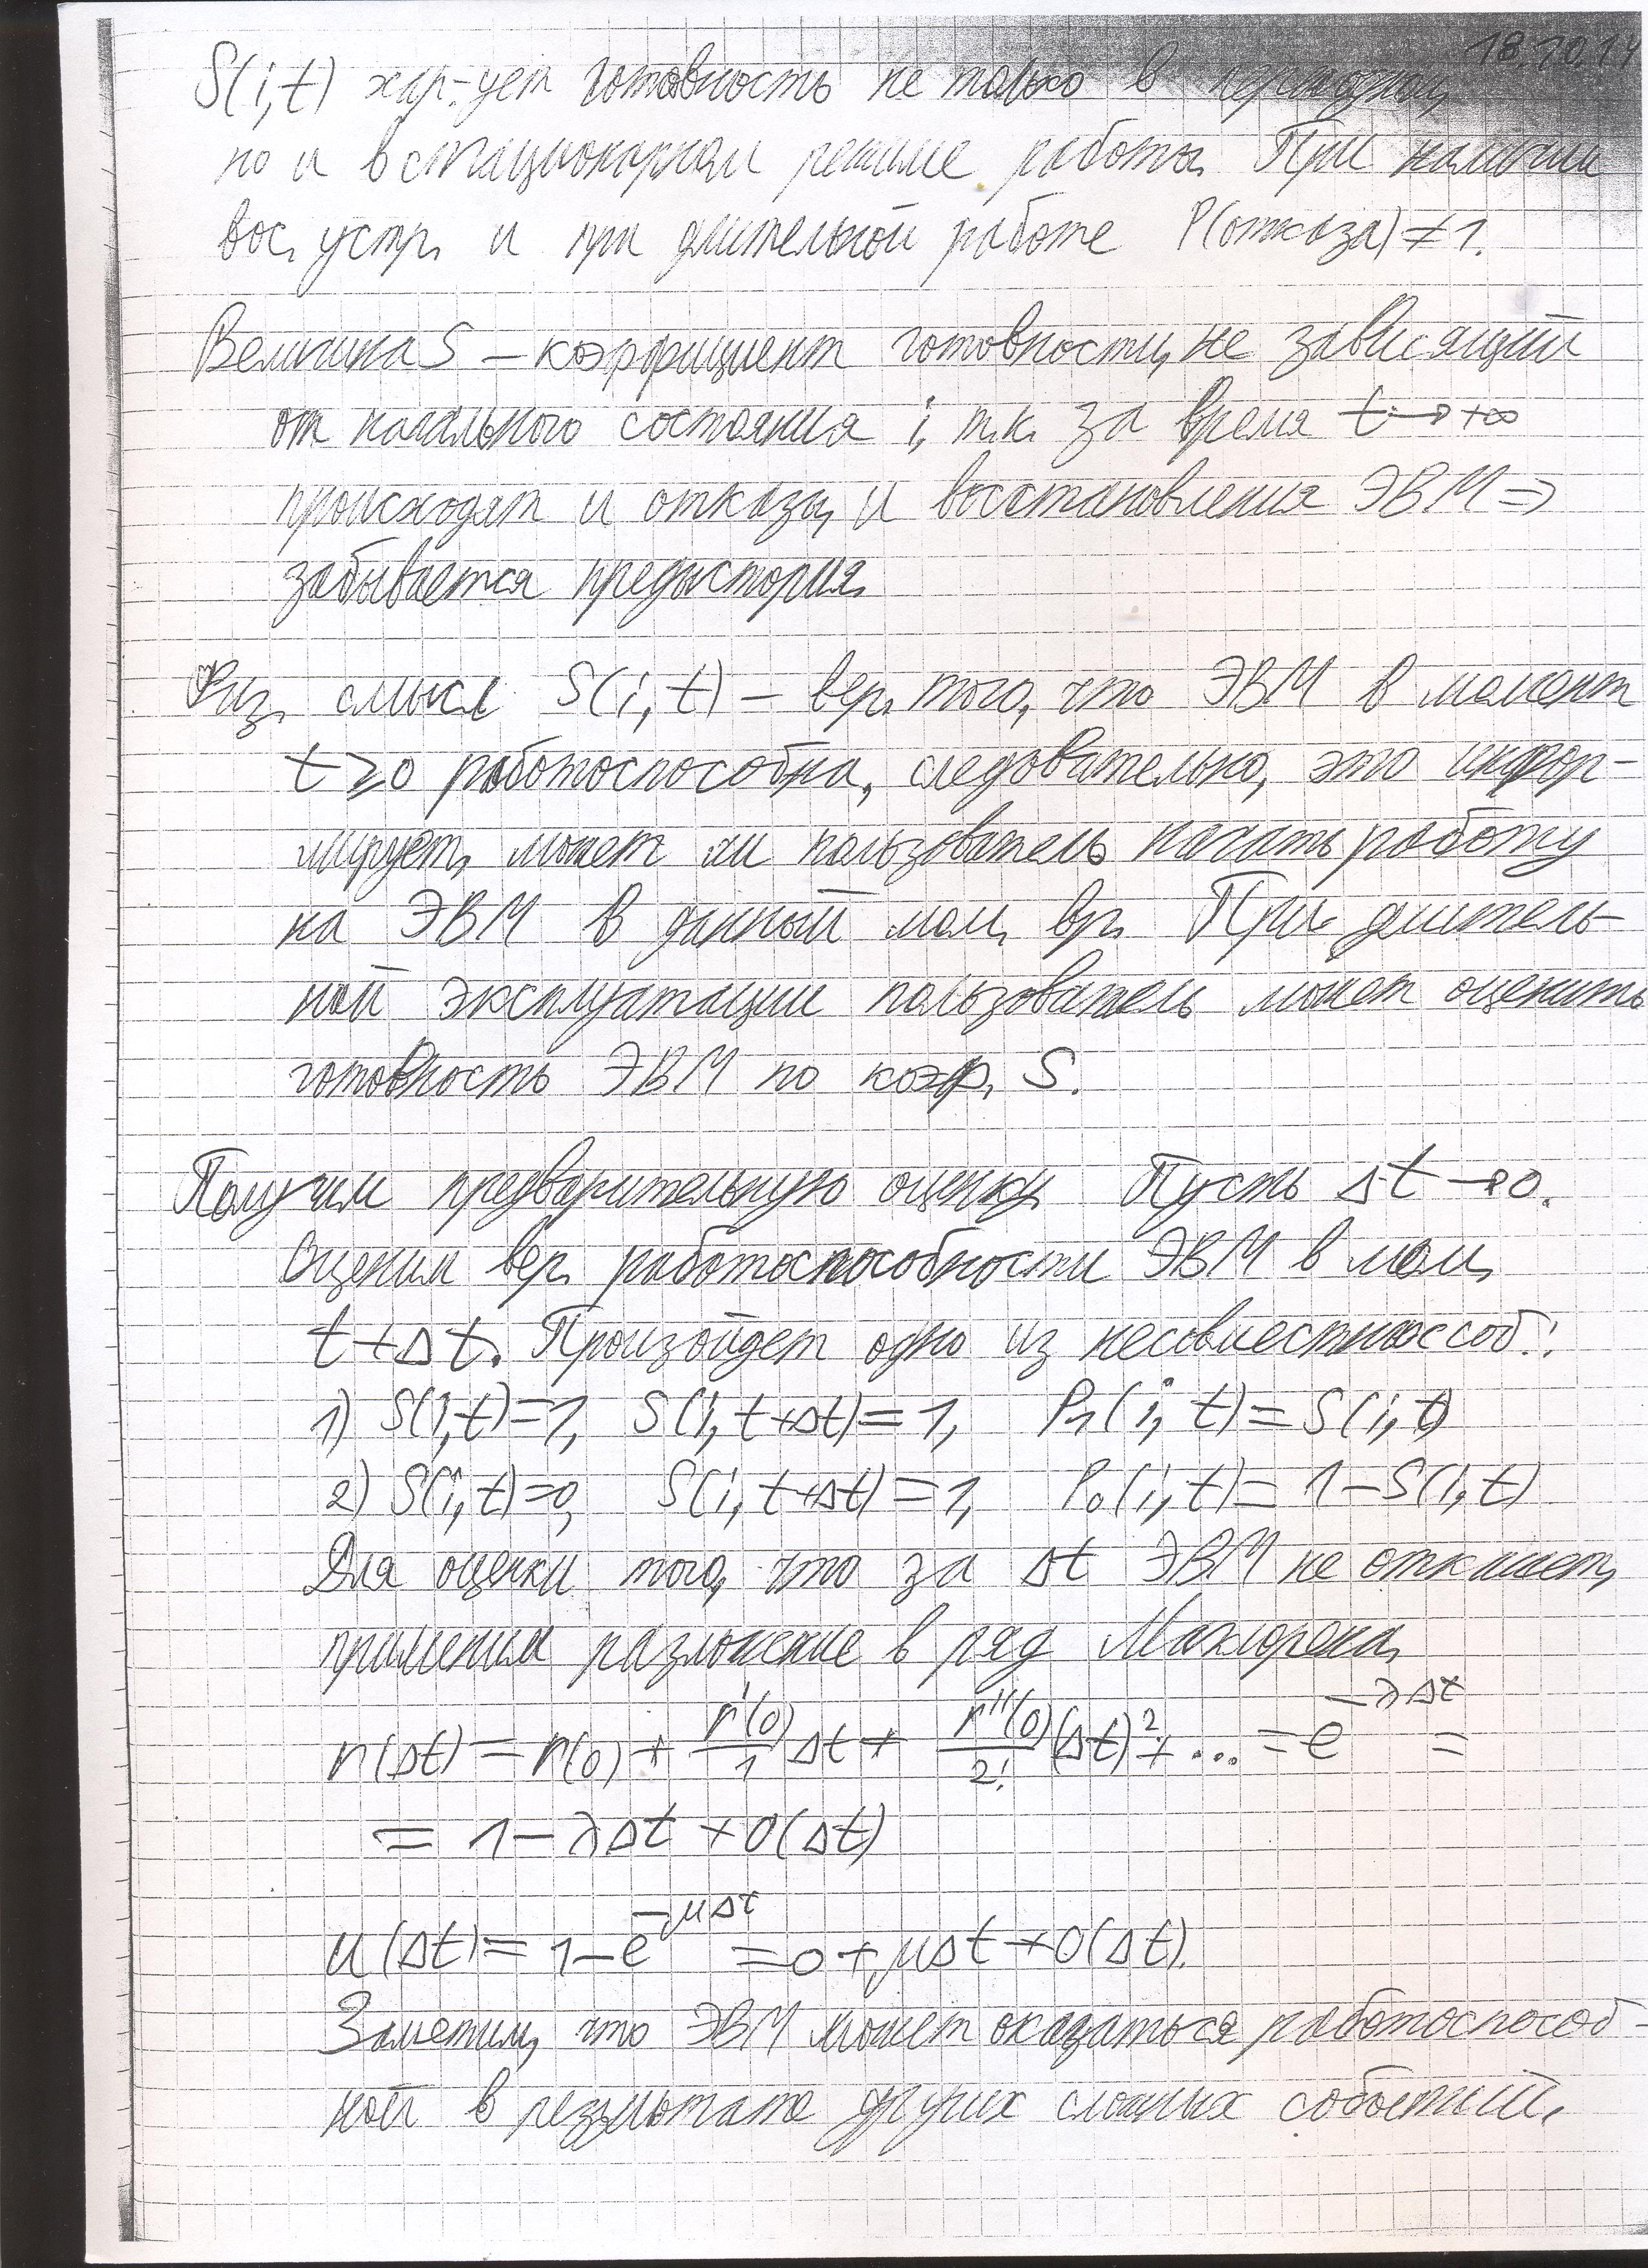 18.10.14
S(i,t) хар-ует готовность не только в переходном,
но и в стационарном режиме работы. При наличии
вос. устр. и при длительной работе P(отказа)≠1.
Величина S – коэффициент готовности, не зависящий
от начального состояния i, т.к. за время t→+∞
происходят и отказы, и восстановления ЭВМ ⇒
забывается предыстория.
Физ. смысл S(i,t) – вер. того, что ЭВМ в момент
t≥0 работоспособна, следовательно, это инфор-
мирует, может ли пользователь начать работу
на ЭВМ в данный мом. вр. При длитель-
ной эксплуатации пользователь может оценить
готовность ЭВМ по коэф. S.
Получим предварительную оценку. Пусть Δt→0.
Оценим вер. работоспособности ЭВМ в мом.
t+Δt. Произойдет одно из несовместных соб.:
1) S(i,t)=1, S(i,t+Δt)=1, P₁(i,t)=S(i,t)
2) S(i,t)=0, S(i,t+Δt)=1, P₀(i,t)=1–S(i,t)
Для оценки того, что за Δt ЭВМ не откажет,
применим разложение в ряд Маклорена.
r(Δt) = r(0) + r'(0)/1 Δt + r''(0)/2! (Δt)² + ... = e^(–λΔt) =
= 1–λΔt+O(Δt)
u(Δt) = 1–e^(–μΔt) = 0+μΔt+O(Δt).
Заметим, что ЭВМ может оказаться работоспособ-
ной в результате других сложных событий,